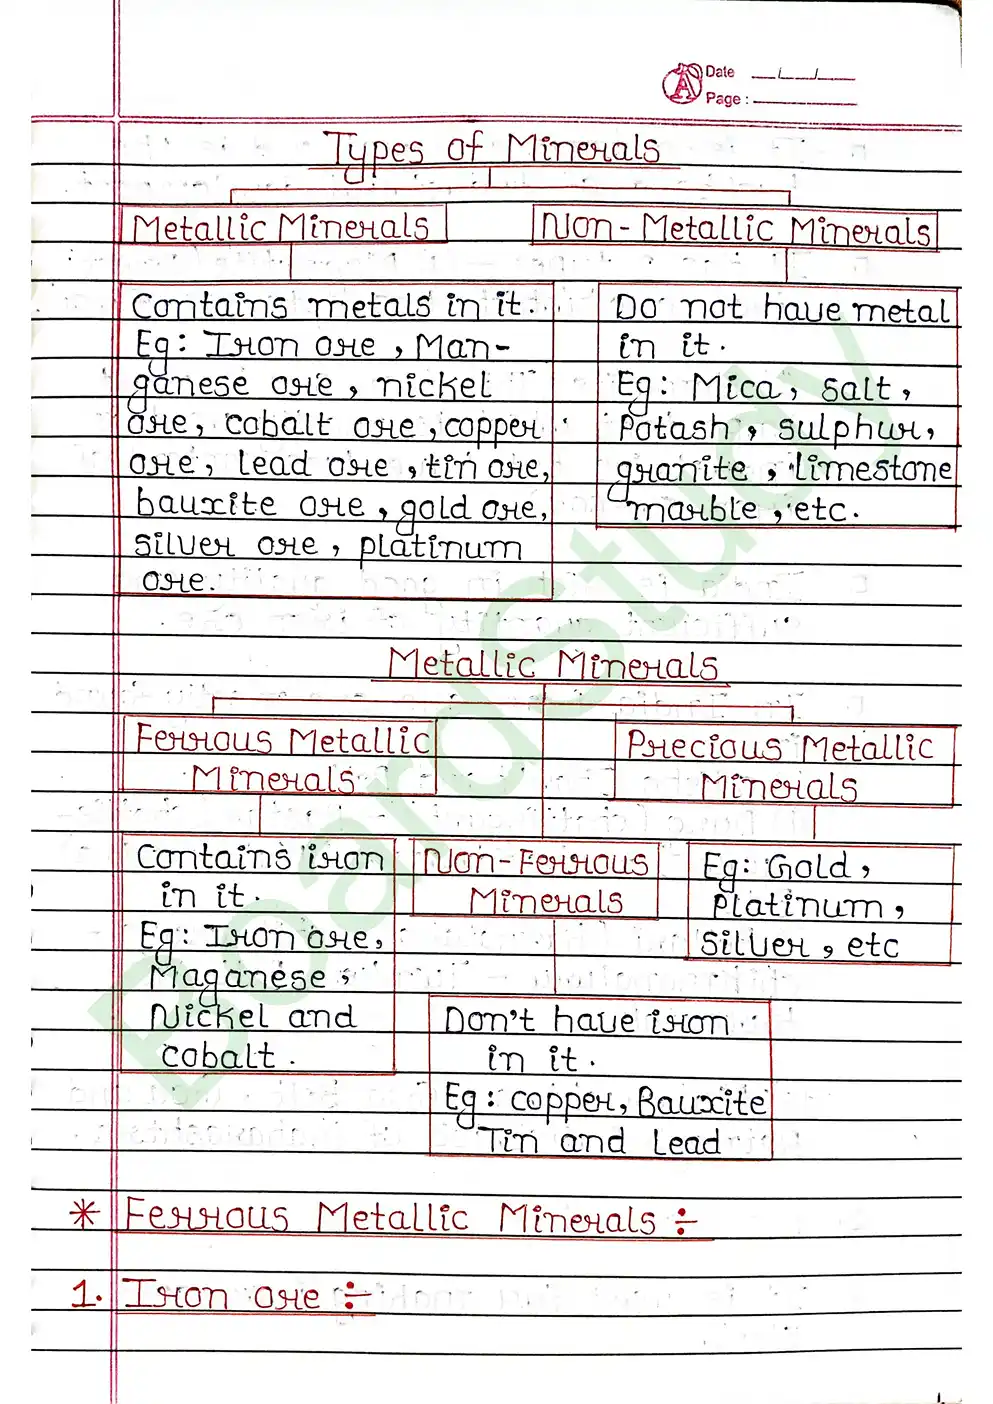 Date __/__/____
Page : ________
Types of Minerals
Metallic Minerals
Non-Metallic Minerals
Contains metals in it.
Eg: Iron ore, Man-
ganese ore, nickel
ore, cobalt ore, copper
ore, lead ore, tin ore,
bauxite ore, gold ore,
silver ore, platinum
ore.
Do not have metal
in it.
Eg: Mica, salt,
Potash, sulphur,
granite, limestone
marble, etc.
Metallic Minerals
Ferrous Metallic
Minerals
Precious Metallic
Minerals
Contains iron
in it.
Eg: Iron ore,
Maganese,
Nickel and
cobalt.
Non-Ferrous
Minerals
Don't have iron
in it.
Eg: copper, Bauxite
Tin and Lead
Eg: Gold,
Platinum,
Silver, etc
* Ferrous Metallic Minerals ÷
1. Iron ore ÷
BoardStudy